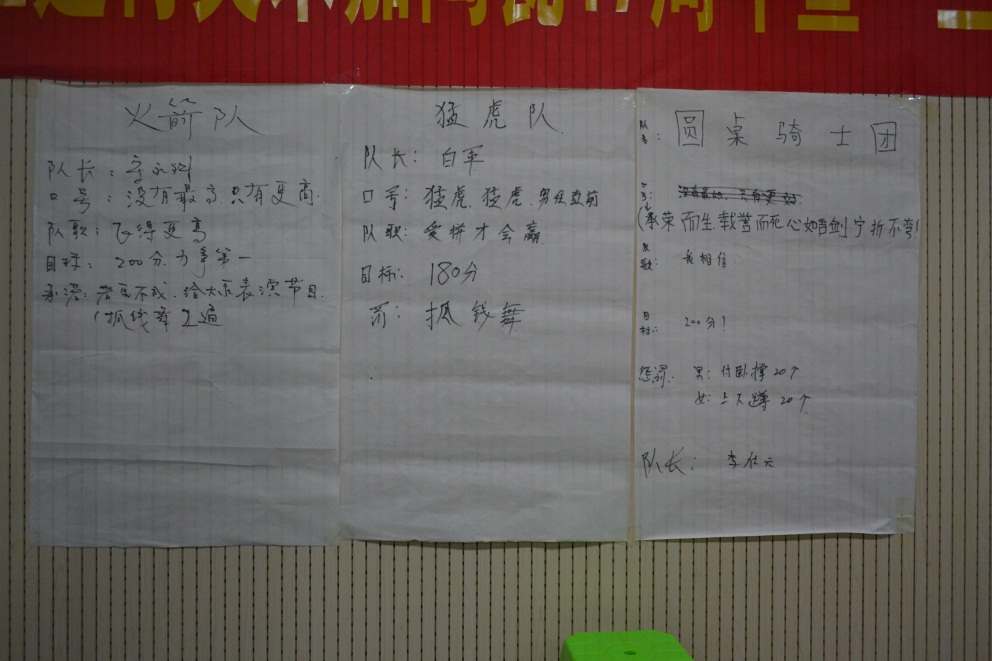 火箭队
队长：
口号：没有最高，只有更高
队歌：飞得更高
目标：200分 力争第一
承诺：若完不成，给大家表演节目
（抓钱舞2遍
猛虎队
队长：白军
口号：猛虎，猛虎，勇往直前
队歌：爱拼才会赢
目标：180分
罚：抓钱舞
队名：圆桌骑士团
口号：没有最好，只有更好
（承荣而生 载誉而死 心如青剑 宁折不弯！
队歌：我相信
目标：200分！
惩罚：男：俯卧撑20个
女：上下蹲20个
队长：李仕云